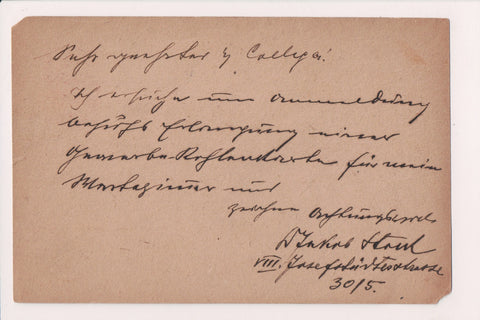 Sehr geehrter H Collega!
Ich ersuche um Anmeldung
behufs Erlangung einer
Gewerbe-Kohlenkarte für mein
Wartezimmer und
zeichne Achtungsvoll
Dr Jakob
VIII. Josefstädterstrasse
30/5.